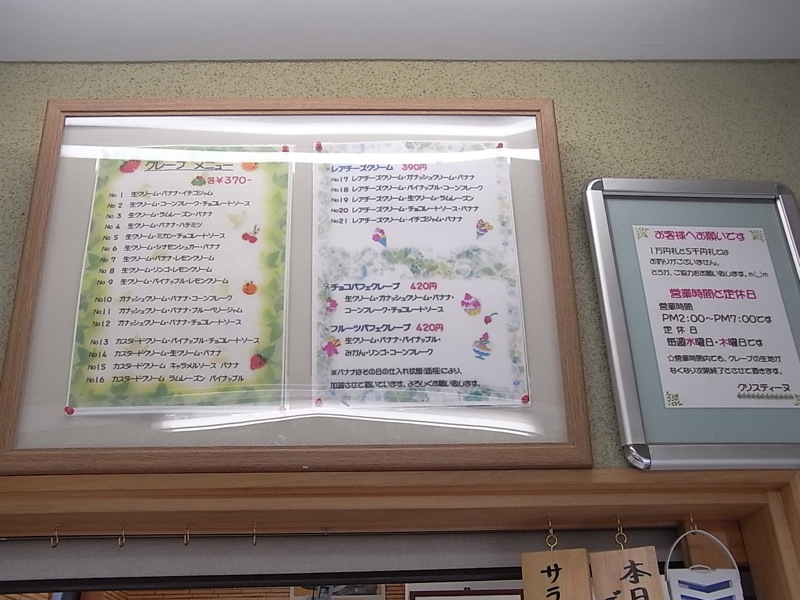 クレープ メニュー
各¥370-
No 1 生クリーム・バナナ・イチゴジャム
No 2 生クリーム・コーンフレーク・チョコレートソース
No 3 生クリーム・ラムレーズン・バナナ
No 4 生クリーム・バナナ・ハチミツ
No 5 生クリーム・ミカン・チョコレートソース
No 6 生クリーム・シナモンシュガー・バナナ
No 7 生クリーム・バナナ・レモンクリーム
No 8 生クリーム・リンゴ・レモンクリーム
No 9 生クリーム・パイナップル・レモンクリーム
No10 ガナッシュクリーム・バナナ・コーンフレーク
No11 ガナッシュクリーム・バナナ・ブルーベリージャム
No12 ガナッシュクリーム・バナナ・チョコレートソース
No13 カスタードクリーム・パイナップル・チョコレートソース
No14 カスタードクリーム・生クリーム・バナナ
No15 カスタードクリーム キャラメルソース バナナ
No16 カスタードクリーム ラムレーズン パイナップル
レアチーズクリーム 390円
No17 レアチーズクリーム・ガナッシュクリーム・バナナ
No18 レアチーズクリーム・パイナップル・コーンフレーク
No19 レアチーズクリーム・生クリーム・ラムレーズン
No20 レアチーズクリーム・チョコレートソース・バナナ
No21 レアチーズクリーム・イチゴジャム・バナナ
チョコパフェクレープ 420円
生クリーム・ガナッシュクリーム・バナナ・
コーンフレーク・チョコレートソース
フルーツパフェクレープ 420円
生クリーム・バナナ・パイナップル・
みかん・リンゴ・コーンフレーク
※バナナはその日の仕入れ状態(価格)により、
加減させて頂いています。よろしくお願い致します。
お客様へお願いです
1万円札と5千円札では
お釣りがございません。
どうか、ご協力をお願い致します。m(_)m
営業時間と定休日
営業時間
PM2:00～PM7:00です
定休日
毎週水曜日・木曜日です
☆営業時間内でも、クレープの生地が
なくなり次第終了とさせて頂きます。
クリスティーヌ
サラ
本日